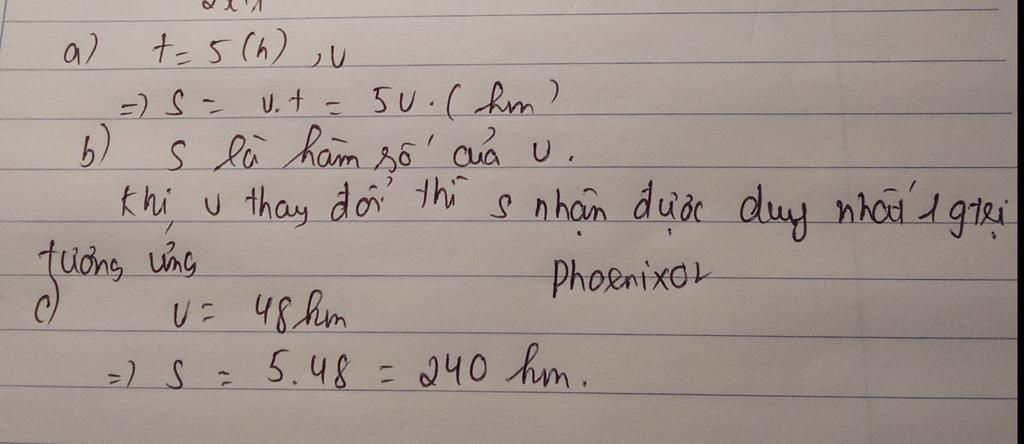 a) t = 5 (h) , v
=> S = v.t = 5v. (km)
b) S là hàm số của v.
Khi v thay đổi thì S nhận được duy nhất 1 gtrị
tương ứng
Phoenixor
c) v = 48 km
=> S = 5.48 = 240 km.